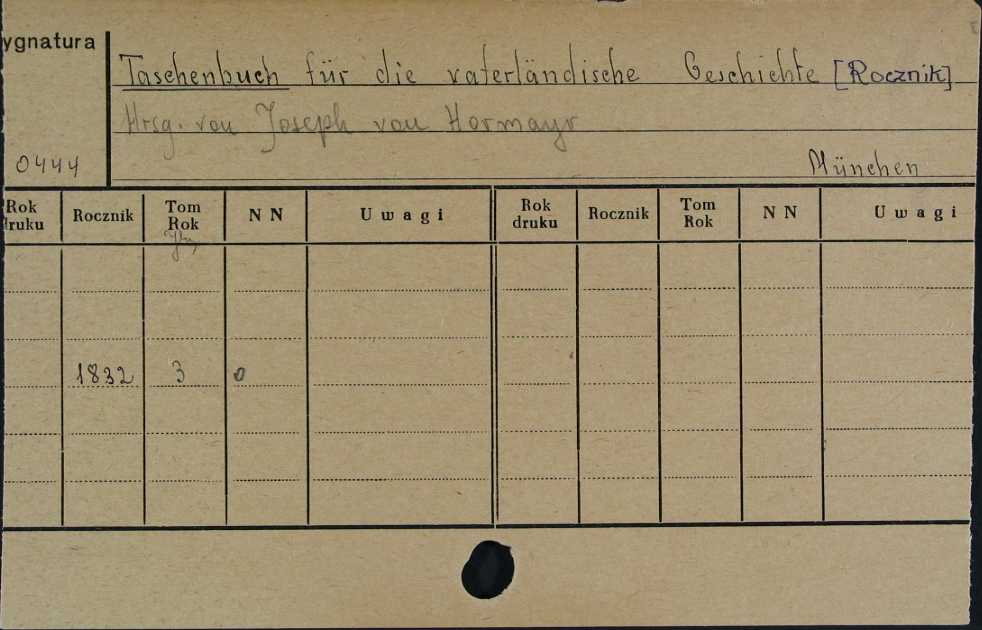 ygnatura
Taschenbuch für die vaterländische Geschichte [Rocznik]
Hrsg. von Joseph von Hormayr
0444
München
Rok druku Rocznik Tom Rok N N Uwagi Rok druku Rocznik Tom Rok N N Uwagi
1832 3 0